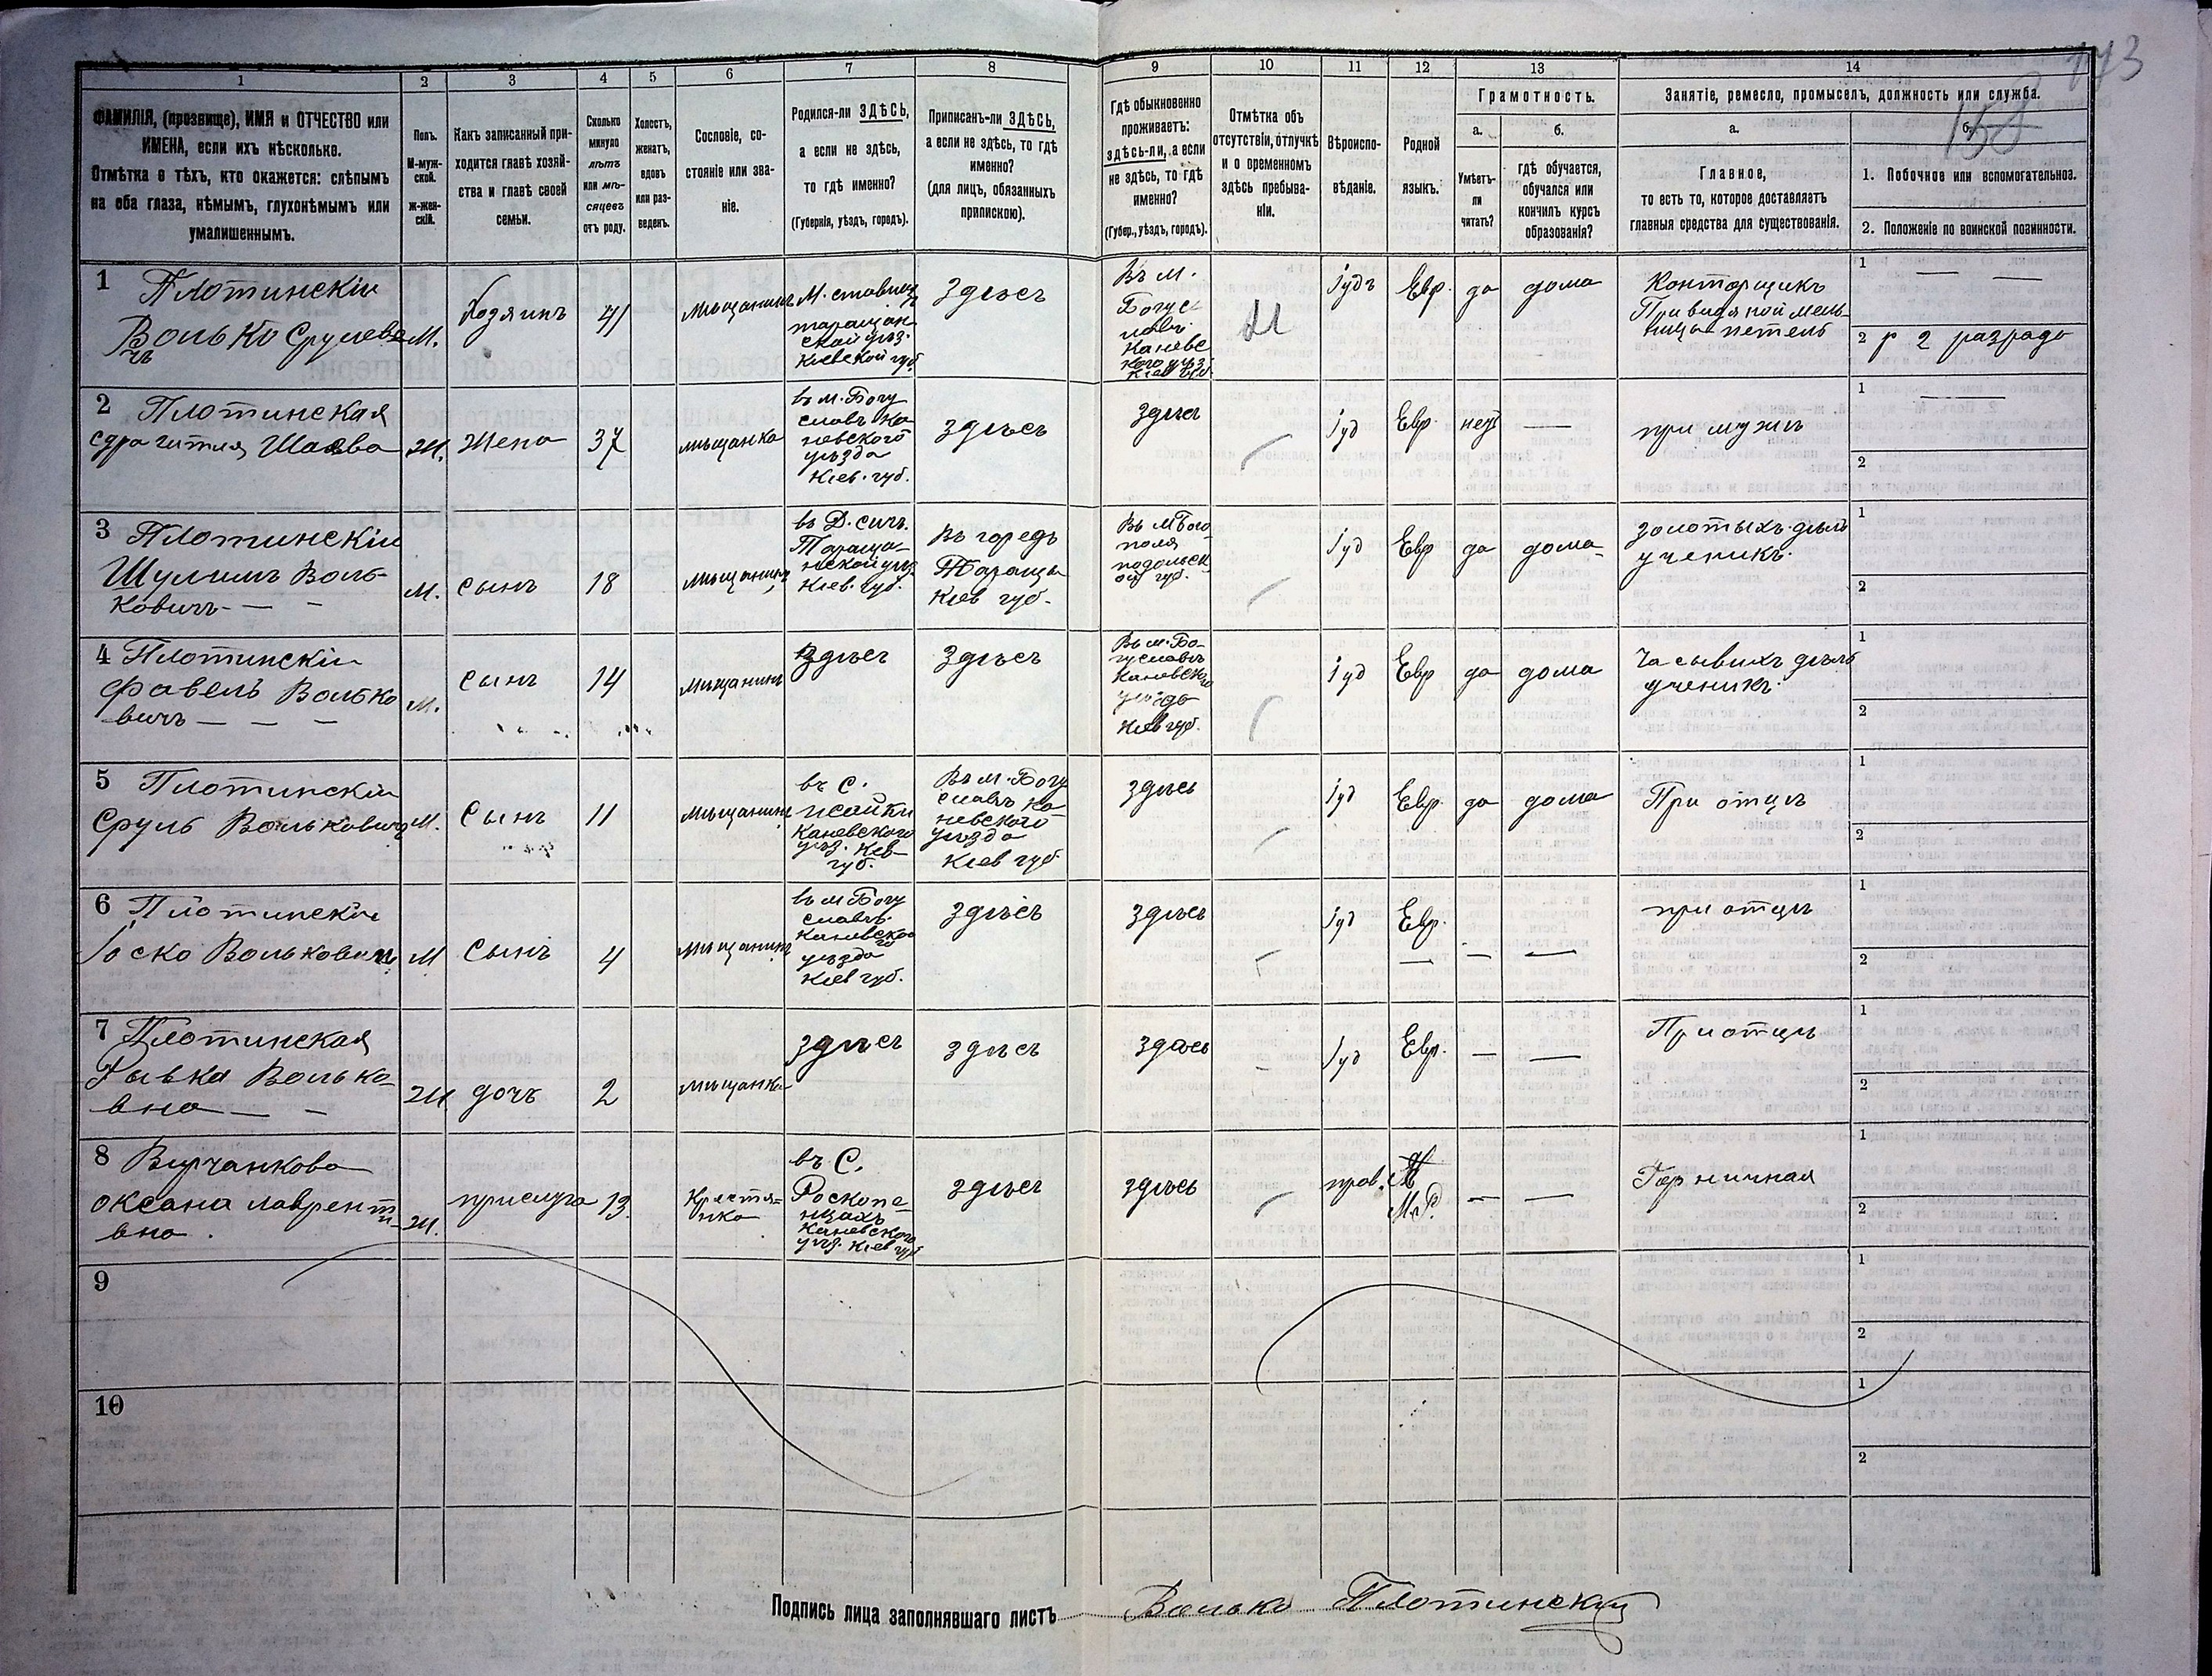 173
158
1 2 3 4 5 6 7 8 9 10 11 12 13 14
ФАМИЛІЯ, (прозвище), ИМЯ и ОТЧЕСТВО или
ИМЕНА, если ихъ нѣсколько.
Отмѣтка о тѣхъ, кто окажется: слѣпымъ
на оба глаза, нѣмымъ, глухонѣмымъ или
умалишеннымъ.
Полъ.
М-муж-
ской.
ж-жен-
скій.
Какъ записанный при-
ходится главѣ хозяй-
ства и главѣ своей
семьи.
Сколько
минуло
лѣтъ
или мѣ-
сяцевъ
отъ роду.
Холостъ,
женатъ,
вдовъ
или раз-
веденъ.
Сословіе, со-
стояніе или зва-
ніе.
Родился-ли ЗДѢСЬ,
а если не здѣсь,
то гдѣ именно?
(Губернія, уѣздъ, городъ).
Приписанъ-ли ЗДѢСЬ,
а если не здѣсь, то гдѣ
именно?
(для лицъ, обязанныхъ
припискою).
Гдѣ обыкновенно
проживаетъ:
здѣсь-ли, а если
не здѣсь, то гдѣ
именно?
(Губер., уѣздъ, городъ).
Отмѣтка объ
отсутствіи, отлучкѣ
и о временномъ
здѣсь пребыва-
ніи.
Вѣроиспо-
вѣданіе.
Родной
языкъ.
Грамотность.
а. б.
Умѣетъ-
ли
читать?
гдѣ обучается,
обучался или
кончилъ курсъ
образованія?
Занятіе, ремесло, промыселъ, должность или служба.
а. б.
Главное,
то есть то, которое доставляетъ
главныя средства для существованія.
1. Побочное или вспомогательное.
2. Положеніе по воинской повинности.
1 Плотинскіи
Волько Срулеви
чъ
М.
Хозяинъ
41
мѣщанинъ
М. ставищ
таращан
ской уѣз.
Кіевской губ
Здѣсъ
Въ м.
Богус
лавѣ
Каневс
кого уѣз.
Кіев губ
іудъ
Евр.
да
дома
Конторщикъ
При видяной мель-
ницы
1 — —
2 р 2 разрядо
2 Плотинская
Шаева
Ж.
Жена
37
мѣщанка
въ м. Богу
славѣ Ка
невского
уѣзда
Кіев. губ.
здѣсъ
здѣсъ
іуд
Евр.
нетъ
—
при мужѣ
1 ——
2
3 Плотинскіи
Шулимъ Воль-
ковичъ — -
М.
сынъ
18
мѣщанинъ
въ Д. сичъ.
Тараща-
нской уѣз.
Кіев. губ.
Въ городѣ
Тараща
Кіев губ.
Въ м Бого
поля
подольск
ой губ.
іуд
Евр
да
дома
золотыхъ дѣлъ
ученикъ.
1
2
4 Плотинскіи
Фавель Волько
вичъ — — —
М.
сынъ
14
мѣщанинъ
здѣсъ
Здѣсъ
Въ м. Бо-
гуславѣ
Каневского
уѣзда
Кіев губ.
іуд
Евр
да
дома
Часывихъ дѣлъ
ученикъ.
1
2
5 Плотинскіи
Сруль Вольковичъ
М.
Сынъ
11
мѣщанинъ
въ С.
исайки
Каневского
уѣз. Кев
губ.
Въ м. Богу
славѣ Ка
невского
уѣзда
Кіев губ
здѣсь
іуд
Евр.
да
дома
При отцѣ
1
2
6 Плотинскіи
Іоско Вольковичъ
М
Сынъ
4
мѣщанинъ
въ м Богу
славѣ.
Каневского
уѣзда
Кіев губ.
здѣсъ
здѣсь
іуд
Евр.
—
— —
при отцѣ
1
2
7 Плотинская
Рывка Волько-
вна — -
Ж
дочъ
2
мѣщанка
здѣсъ
здѣсъ
здась
іуд
Евр.
— —
При отцѣ
1
2
8 Вирчанкова
оксана лаврентъ
вна.
Ж.
прислуга
13
Крестя-
нка
въ С.
Роскопе-
нцахъ
Каневского
уѣз. Кіев губ
здѣсъ
здѣсь
прав.
М.Р.
— —
Горничная
1
2
9
1
2
10
1
2
Подпись лица заполнявшаго листъ Волько Плотинскій